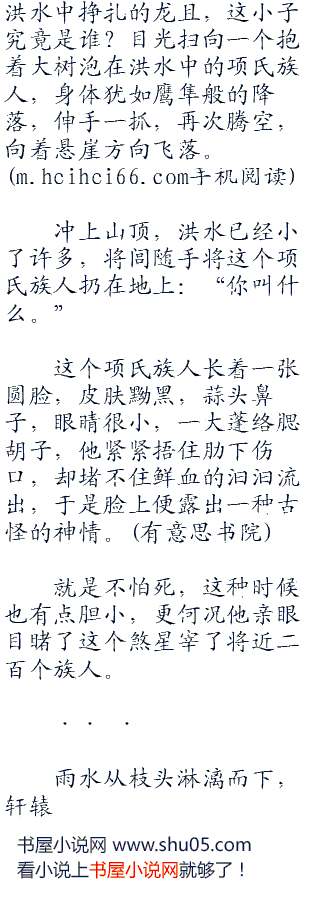 洪水中挣扎的龙且，这小子
究竟是谁？目光扫向一个抱
着大树泡在洪水中的项氏族
人，身体犹如鹰隼般的降
落，伸手一抓，再次腾空，
向着悬崖方向飞落。
(m.hcihci66.com手机阅读)
冲上山顶，洪水已经小
了许多，将闾随手将这个项
氏族人扔在地上：“你叫什
么。”
这个项氏族人长着一张
圆脸，皮肤黝黑，蒜头鼻
子，眼睛很小，一大蓬络腮
胡子，他紧紧捂住肋下伤
口，却堵不住鲜血的汩汩流
出，于是脸上便露出一种古
怪的神情。(有意思书院)
就是不怕死，这种时候
也有点胆小，更何况他亲眼
目睹了这个煞星宰了将近二
百个族人。
．．．
雨水从枝头淋漓而下，
轩辕
书屋小说网 www.shu05.com
看小说上书屋小说网就够了！